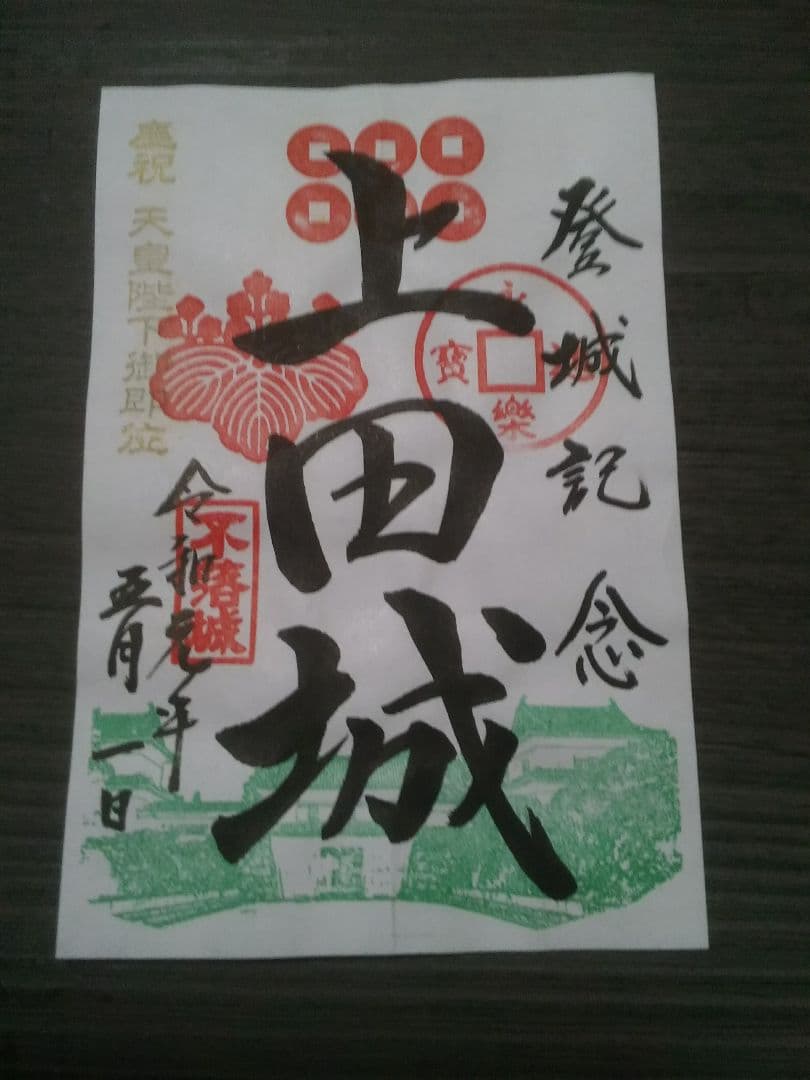 登城記念
永樂通寳
上田城
不落城
令和元年
五月一日
慶祝 天皇陛下御即位